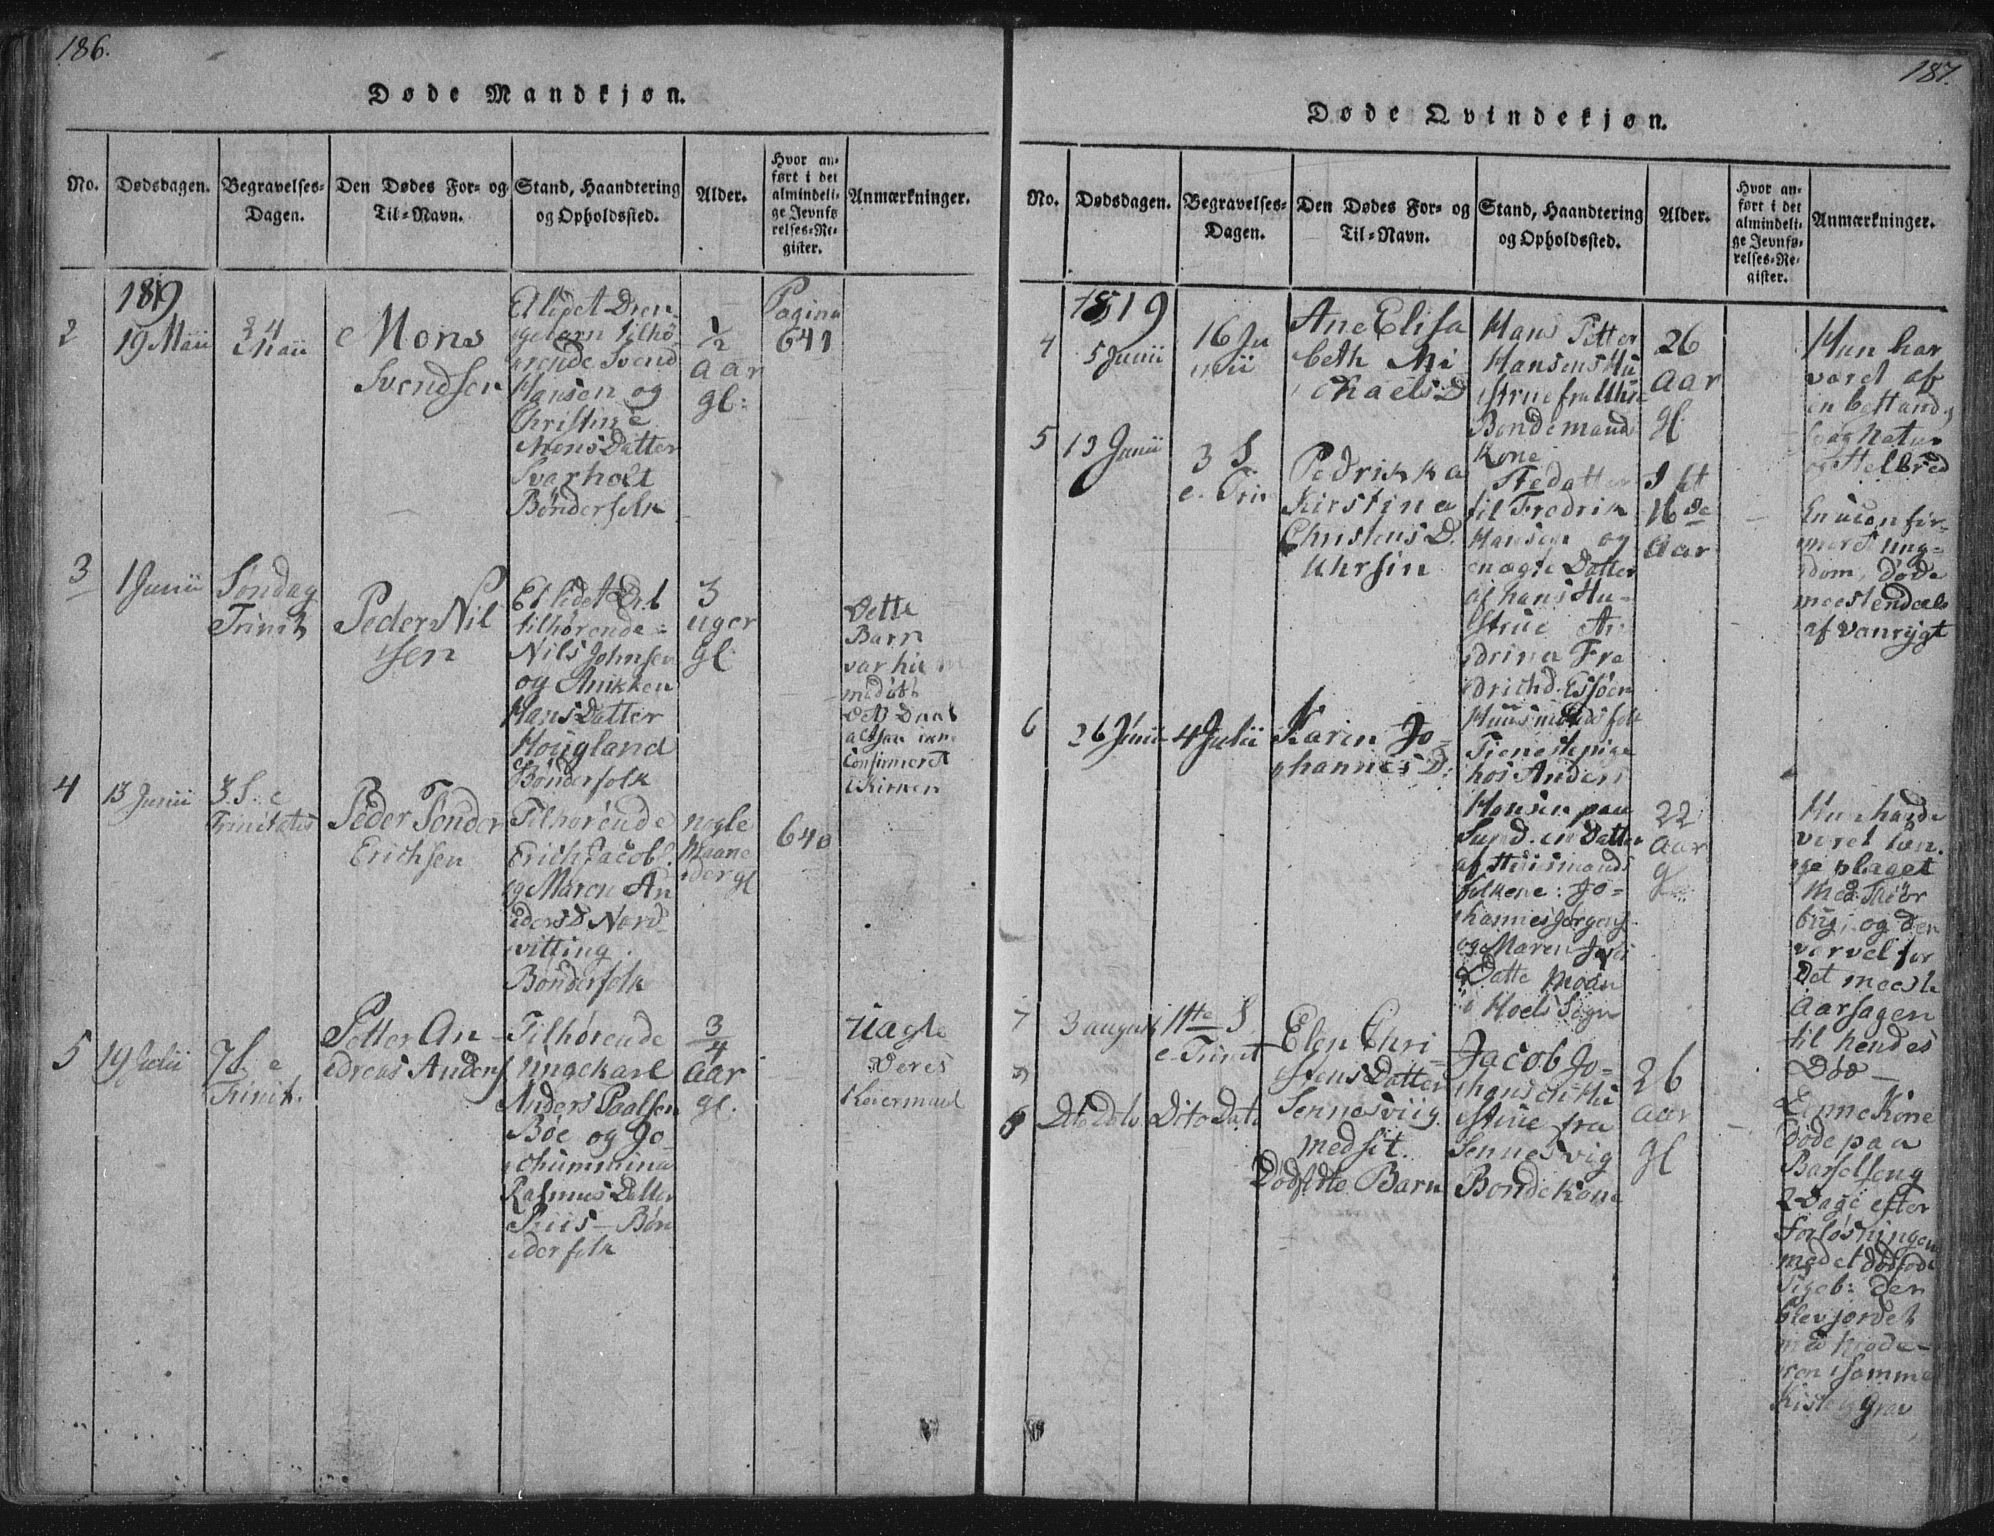 186.
Døde Mandkjøn.
No.
Dødsdagen.
Begravelses-
Dagen.
Den Dødes For- og
Til-Navn.
Stand, Haandtering
og Opholdssted.
Alder.
Hvor an-
ført i det
almindeli-
ge Jevnfø
relses-Re-
gister.
Anmærkninger.
1819
2
19 Maii
24
Maii
Mons
Svendsen
Et lidet Dren-
gebarn tilhø-
rende Svend
Hansen og
Christine
MonsDatter
Svarholt
Bønderfolk
1/2
Aar
gl:
Pagina
641
3
1 Junii
Søndag
Trinit
Peder Nil
sen
Et lidet
tilhørende
Nils Johnsen
og Anikken
HansDatter
Hougland
Bønderfolk
3
uger
gl.
Dette
Barn
var
Confirmeret
i Kirken
4
13 Junii
3. S. e
Trinitatis
Peder Tønder
Erichsen
Tilhørende
Erich Jacobs.
og Maren An
ders D Nord
vitting.
Bønderfolk
nogle
Maane
der gl
640
5
19 Julii
7 S. e
Trinit.
Petter An-
dreas Anders
Tilhørende
Ungekarl
Anders Paalsen
Boe og Jo-
chummina
RasmusDatter
Riis - Bøn
derfolk
3/4
Aar
gl.
Uagte
Deres
187.
Døde Qvindekjøn.
No.
Dødsdagen.
Begravelses-
Dagen.
Den Dødes For- og
Til-Navn.
Stand, Haandtering
og Opholdssted.
Alder.
Hvor an-
ført i det
almindeli-
ge Jevnfø-
relses-Re-
gister.
Anmærkninger.
1819
4
5 Junii
16 Ju
nii
Ane Elisa
beth Mi
chaels D
Hans Petter
Hansens Hu
strue fra
Bondemands
Kone
26
Aar
gl.
Hun har
været af
en bestandig
svag Natur
og Helbred
5
13 Junii
3 S.
e. Trin
Pedrikka
Kirstina
Christens D.
Uhrsin
Stedatter
til Fredrik
Hansen og
en ægte Datter
af hans Hu-
strue An
drina Fre
drichd. Essøen
Huusmandsfolk
I sit
16de
Aar
En uconfir-
meret ung-
dom, døde
meestendeels
af vanrygt
6
26 Junii
4 Julii
Karen Jo-
hannes D:
Tienestepige
hos Anders
Hansen paa
Sund. en Datter
af Huusmands
folkene: Jo-
hannes Jørgens
og Maren
Datte Moan
i Hoels Sogn
22
Aar
gl.
Hun havde
været læn
ge plaget
med Skiør
bug, og den
var vel for
det meeste
Aarsagen
til hendes
Død -
7
3 august
11te S
e. Trinit
Elen Chri
stensDatter
Sennesviig
med sit
Dødfødte Barn
Jacob Jo-
hansens Hu
strue fra
Sennesvig
Bondekone
26
Aar
gl
8
Dito Dato
Dito Dato
Denne Kone
døde paa
Barselseng
2 Dage efter
Forløsningen
med et dødføde
Pigeb: der
blev jordet
med Mode-
ren i samme
Kiste og Grav